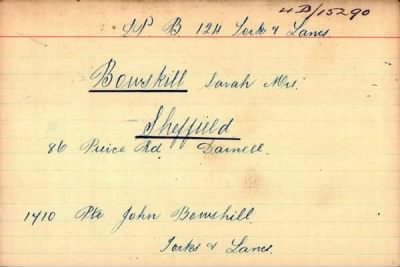 4D/15290
SP B 124 Yorks & Lancs
Bowskill Sarah Mrs.
Sheffield
86 Peirce Rd Darnell.
1410 Pte John Bowskill.
Yorks & Lancs.